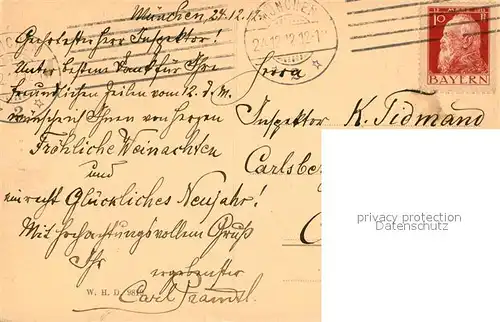 München, 24.12.12.
Geehrtester Herr Inspektor!
Unter bestem Dank für Ihre
freundlichen Zeilen vom 12. d. M.
wünsche ich Ihnen von Herzen
Fröhliche Weinachten
und
ein recht Glückliches Neujahr!
Mit hochachtungsvollem Gruß
Ihr
ergebenster
Carl
W. H. D.
MÜNCHEN
10
BAYERN
Herrn
Inspektor K. Tidmand
Carlsbe
privacy protection
Datenschutz